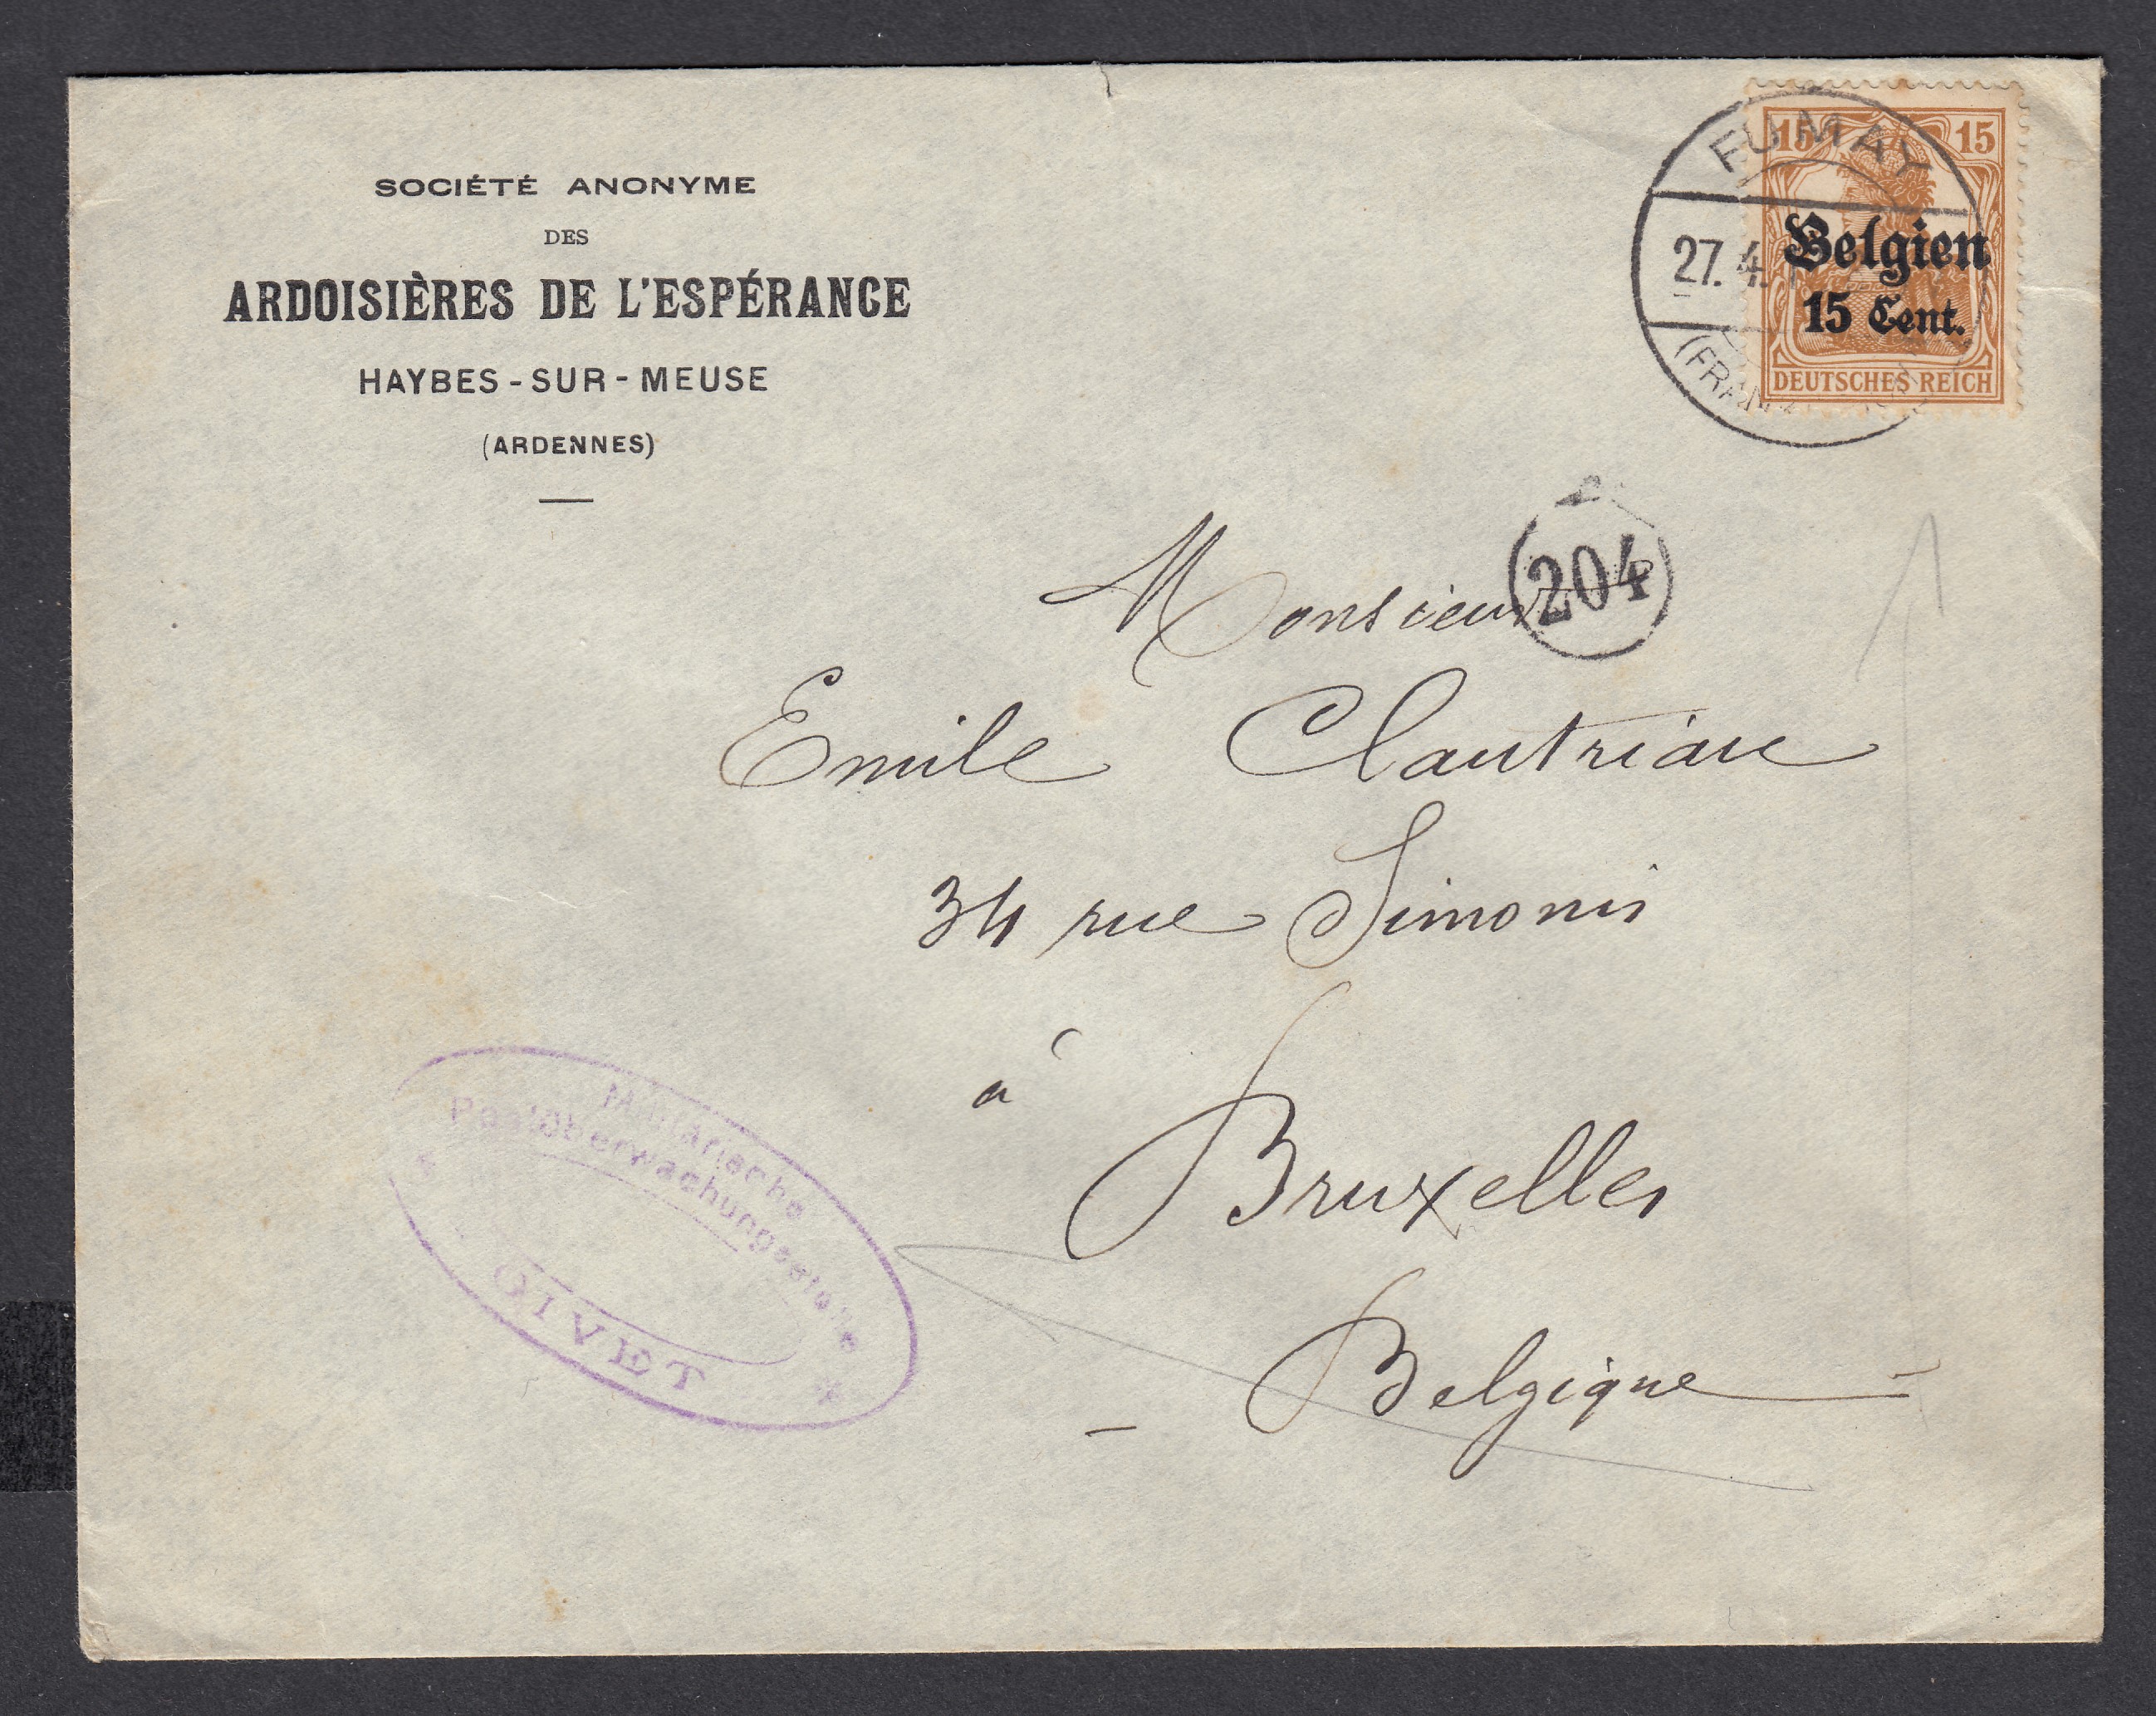 SOCIÉTÉ ANONYME
DES
ARDOISIÈRES DE L'ESPÉRANCE
HAYBES-SUR-MEUSE
(ARDENNES)
FUMAY
27.4.
15 15
Belgien
15 Cent.
DEUTSCHES REICH
204
Monsieur
Emile Clautriau
34 rue Simonis
à
Bruxelles
- Belgique -
Militärische
Postüberwachungsstelle
GIVET